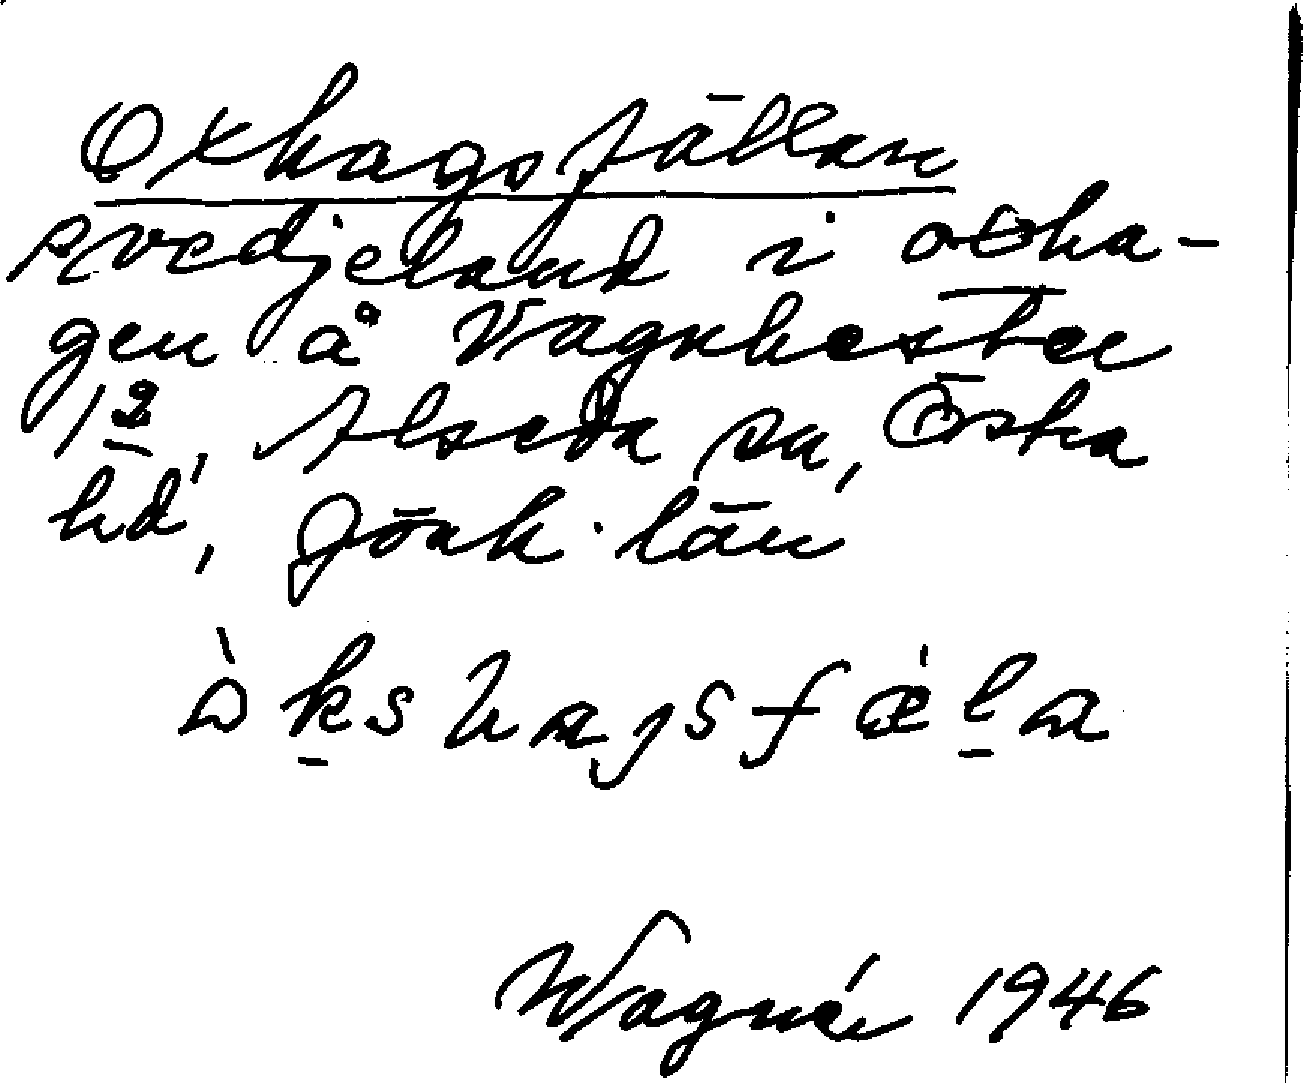 Oxhagsfällan
svedjeland i oxha-
gen å Vagnhester
1 2, Alseda sn, Östra
hd, Jönk. län
òkshagsfæ̀la
Wagnér 1946